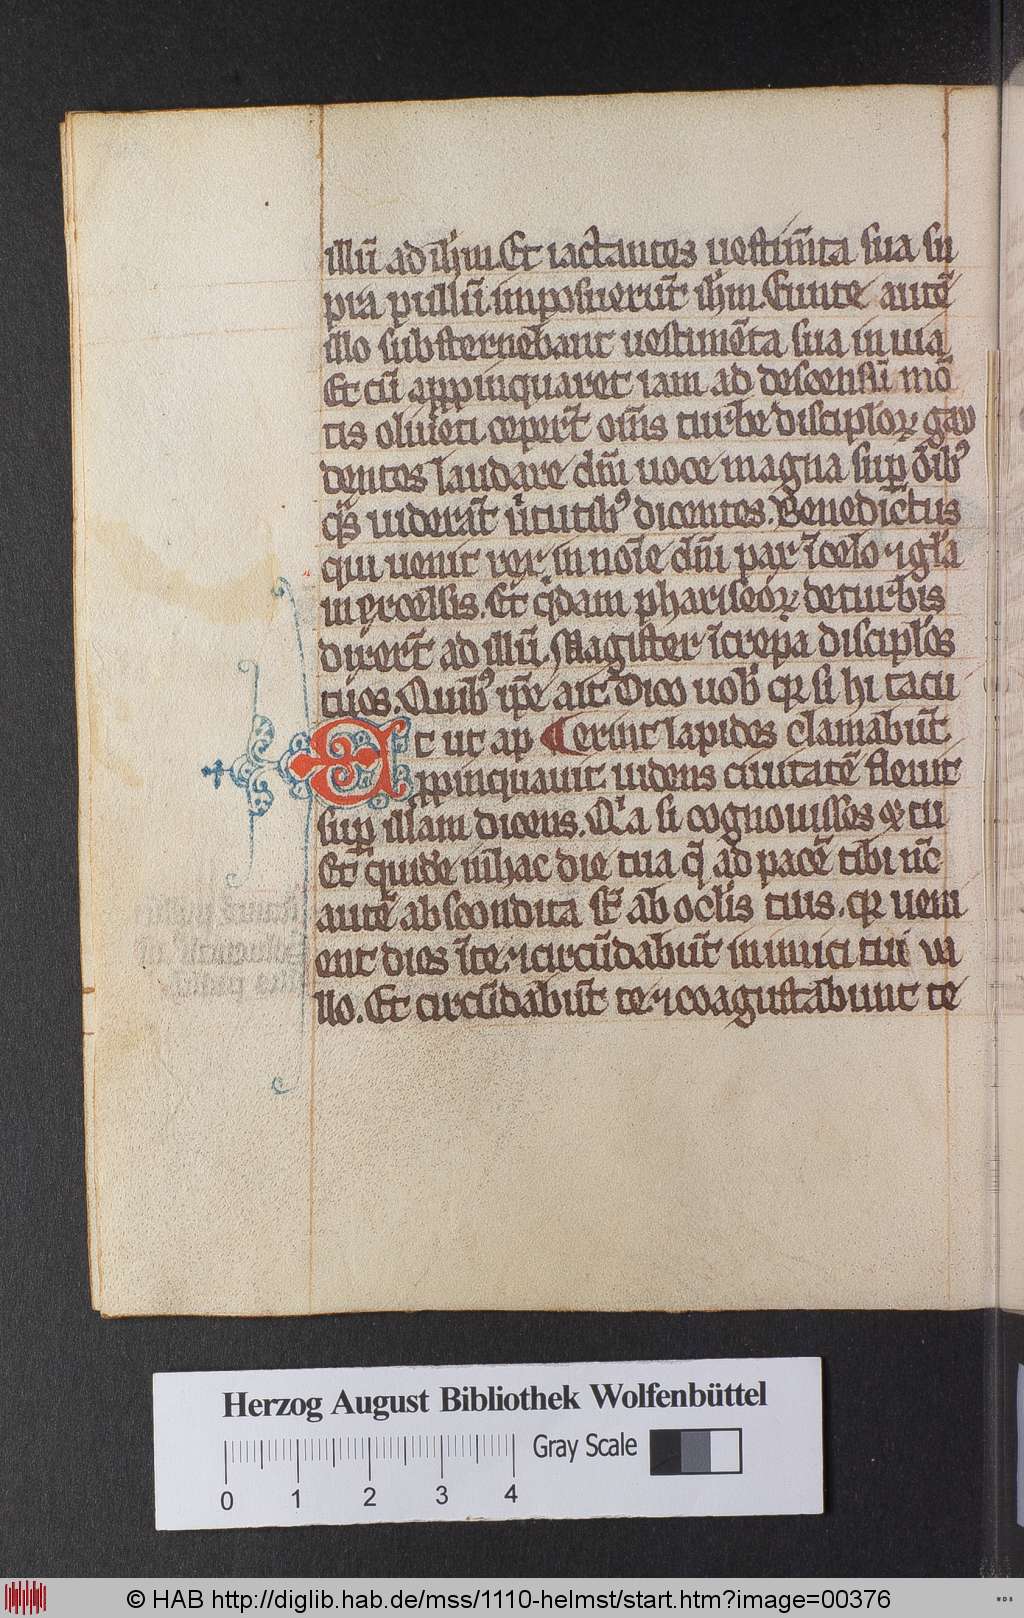 illū ad ihm. Et iactantes uestim̄ta sua su
pra pullū imposuerūt ihm. Eunte autē
illo substernebant uestimēta sua in uia
Et cū appinquaret iam ad descensū mō
tis oliueti ceper̄t om̄s turbe disciploꝝ gau
dentes laudare dm̄ uoce magna sup oībꝰ
qs̄ uiderāt ůtutibꝰ dicentes. Benedictus
qui uenit rex in noīe dn̄i pax ī celo ⁊ gl̄a
in excelsis. Et qͥdam phariseoꝝ de turbis
dixer̄t ad illū. Magister īcrepa disciplos
tuos. Quibꝰ ip̄e ait. Dico uob̄ qꝛ si hi tacu
Et ut ap ¶ erint lapides clamabūt.
ppinquauit. uidens ciuitatē fleuit
sup illam dicens. Qͥa si cognouisses ⁊ tu
Et quidē in hac die tua q̄ ad pacē tibi nc̄
autē abscondita st̄ ab oclis tuis. qꝛ ueni
ent dies īte. ⁊ circūdabūt inimici tui ua
llo. Et circūdabūt te. ⁊ coagustabunt te
Herzog August Bibliothek Wolfenbüttel
Gray Scale
0 1 2 3 4
© HAB http://diglib.hab.de/mss/1110-helmst/start.htm?image=00376